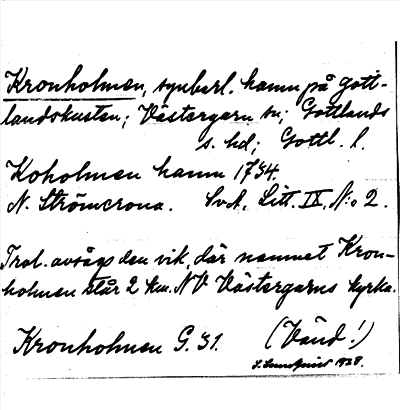 Kronholmen, synbarl. hamn på Gott-
landskusten; Västergarn sn; Gottlands
s. hd; Gottl. l.
Koholmen hamn 1734.
N. Strömcrona. SvA. Litt. IX, N:o 2.
Trol. avsågs den vik, där namnet Kron-
holmen står 2 km. NV Västergarns kyrka.
Kronholmen G. 31. (Vänd!)
1928.